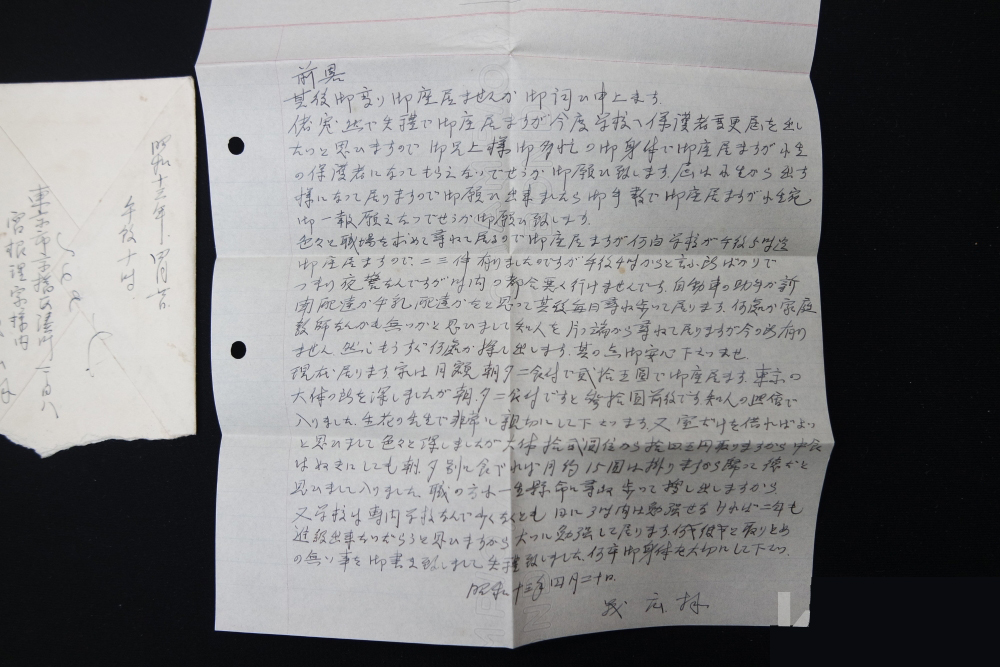 前略
其後御変り御座居ませんか 御伺ひ申上ます.
突然で失礼で御座居ますが今度学校へ保護者変更届を出し
たいと思ひますので 御兄上様御多忙の御身体で御座居ますが小生
の保護者になってもらえないでせうか 御願ひ致します. 届は小生から出す
様になって居りますので御願ひ出来ましたら御手数で御座居ますが小生宛
御一報願えないでせうか御願ひ致します.
色々と職場を求めて尋ねて居るので御座居ますが何白学校が午後5時迄
御座居ますので、二三件有りましたのですが午後4時からと云ふ所ばかりで
つまり夜警なんですが時間の都合悪く行けませんです. 自動車の助手か新
聞配達か牛乳配達かをと思って其後毎日尋ね歩いて居ります. 何処か家庭
教師なんかも無いかと思ひまして知人を片っ端から尋ねて居りますが今の所有り
ません 然しもうすぐ何処か探し出します. 其の点御安心下さいませ
現在居ります家は月額朝夕二食付で弐拾五圓で御座居ます. 東京の
大体の所を探しましたが朝夕二食付ですと参拾圓前後です 知人の照会で
入りました. 生花の先生で非常に親切にして下さいます 又室だけを借ればよい
と思ひまして色々と探しましたが大体拾弐圓位から拾四五円取りますから中食
はぬきにしても朝夕別に食べれば月約15圓は掛りますから 却って徳だと
思ひまして入りました. 職の方は一生懸命に尋ね歩いて探し出しますから
又学校は専門学校なんで少くなくとも一日に3時間は勉強せなければ二年も
進級出来ないだらうと思ひますから大いに勉強して居ります. 何や彼やと取りとめ
の無い事を御書き致しまして失礼致しました. 何卒御身体を大切にして下さい
昭和十三年四月二十日.
昭和十三年 四月
午後十時.
東京市京橋区湊町一丁目八
宮根理容様内